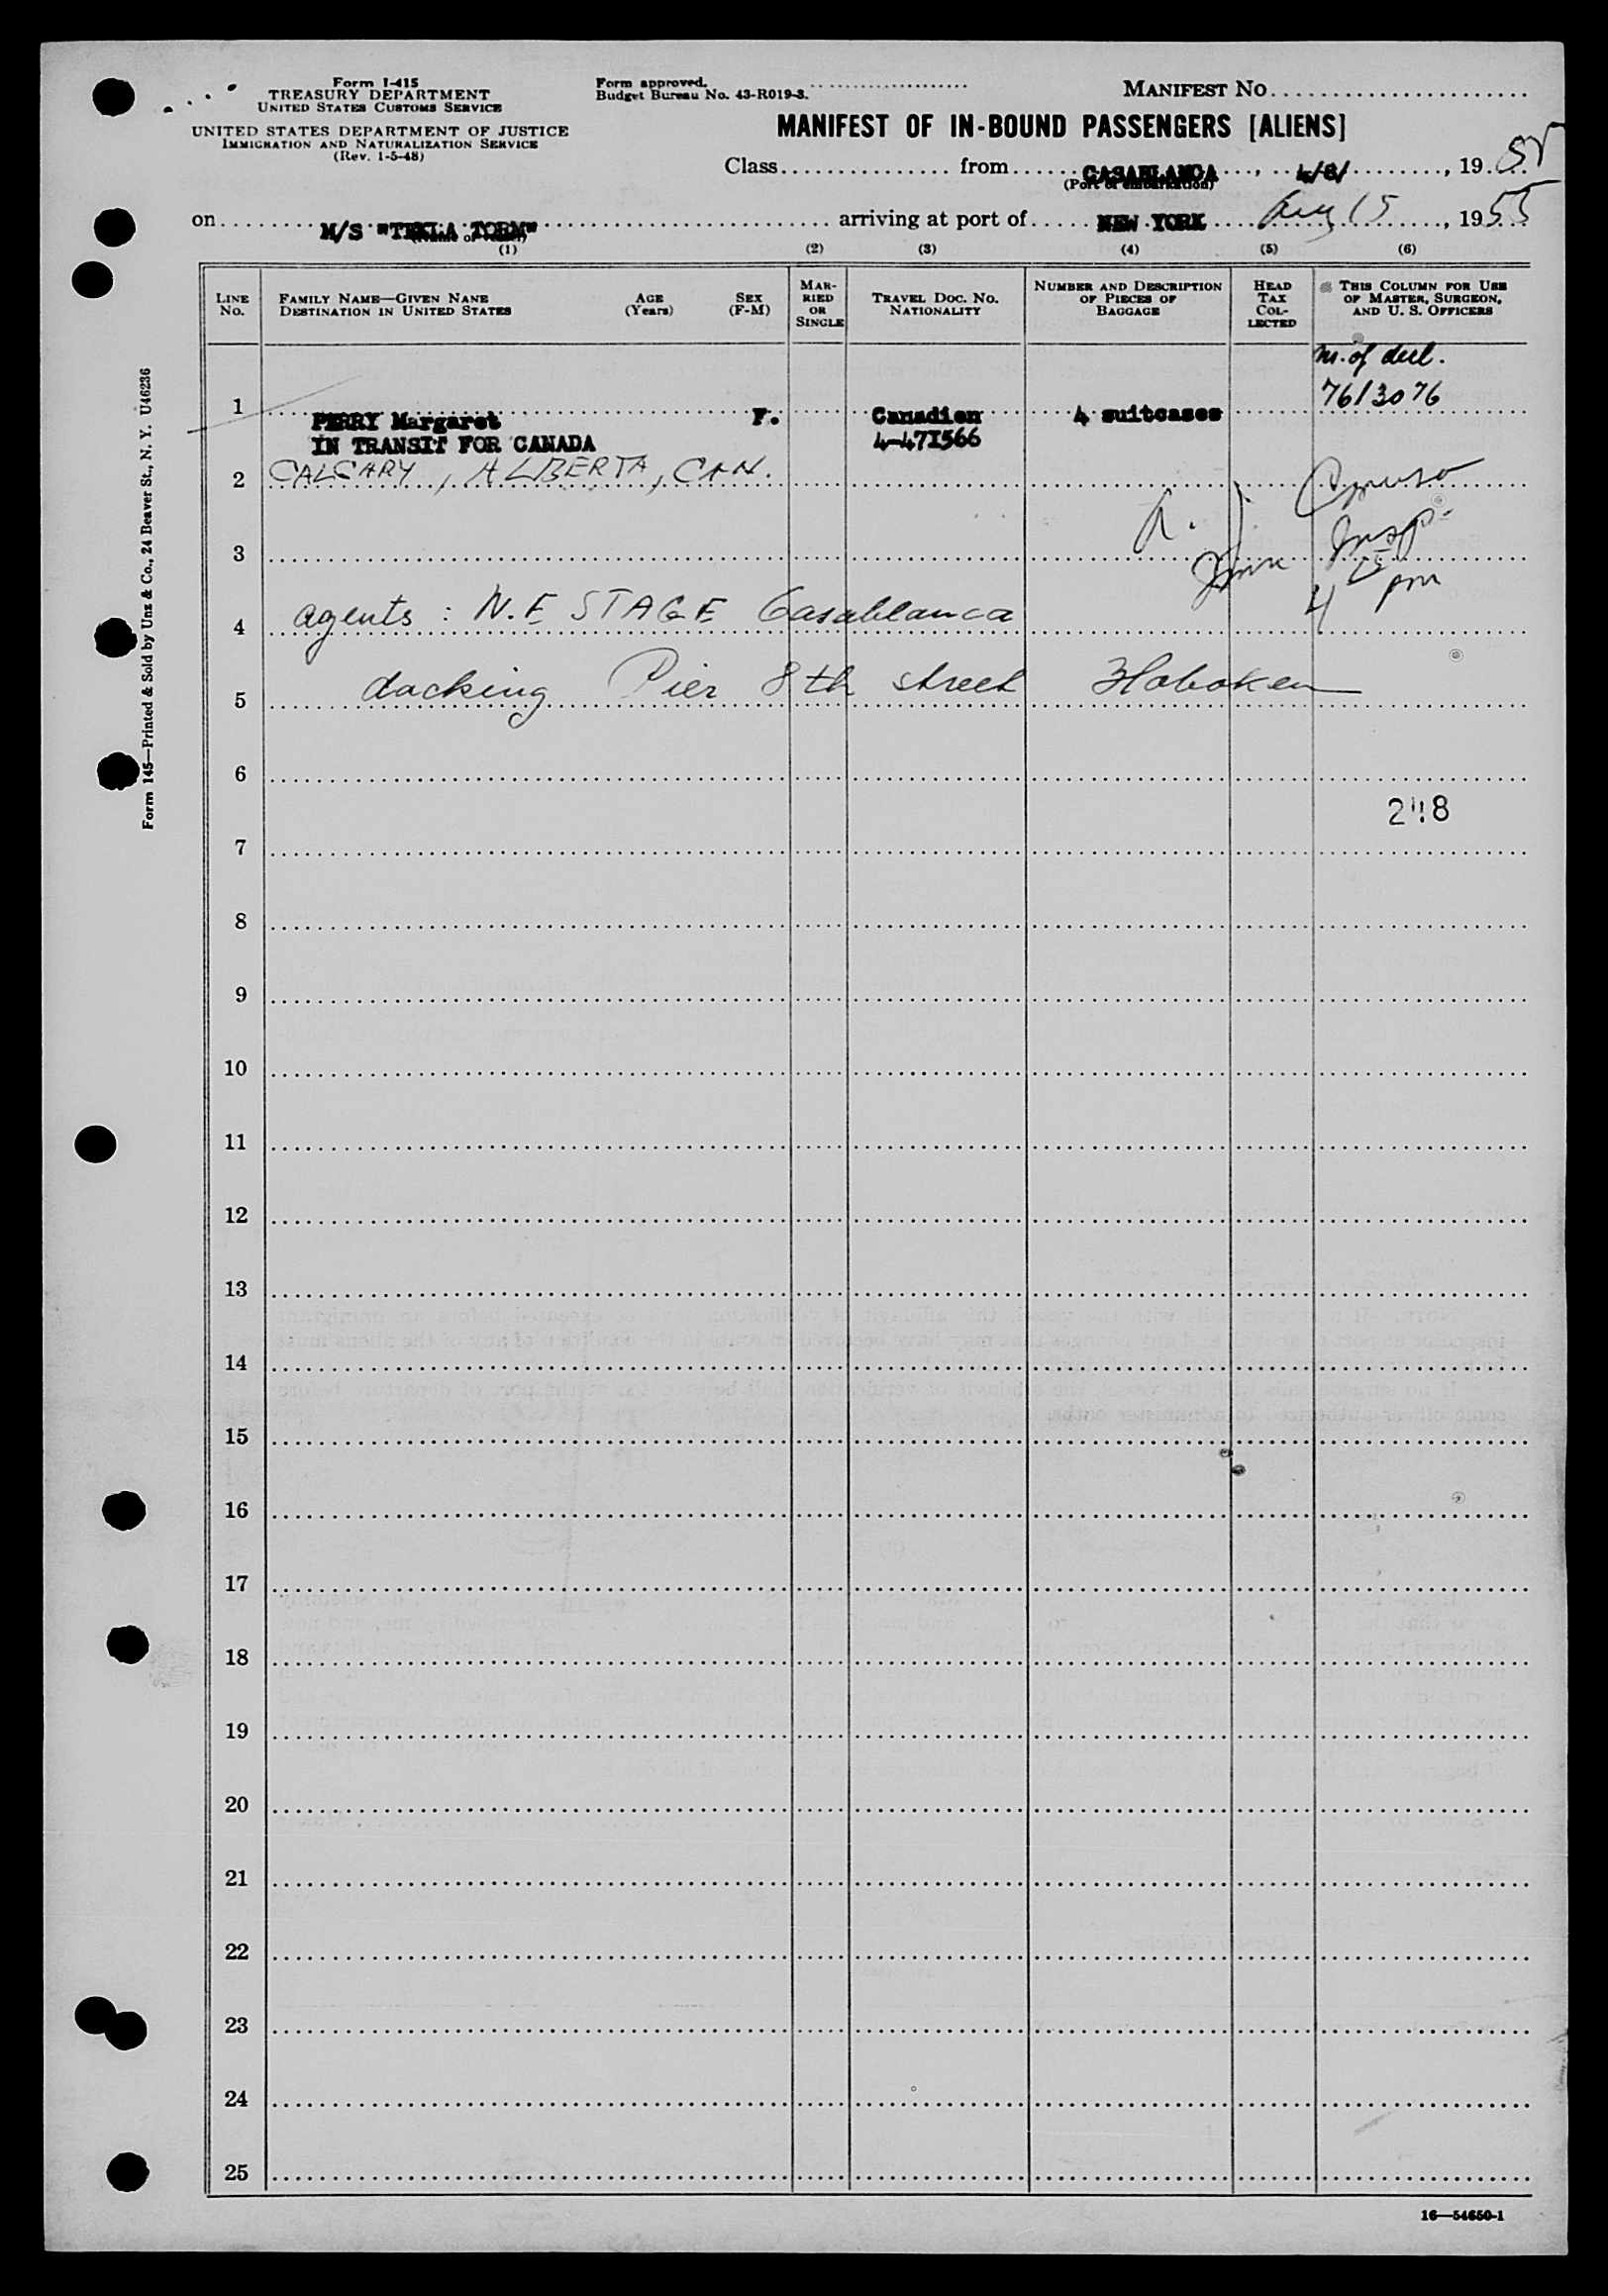 Form I-415
TREASURY DEPARTMENT
UNITED STATES CUSTOMS SERVICE
UNITED STATES DEPARTMENT OF JUSTICE
IMMIGRATION AND NATURALIZATION SERVICE
(Rev. 1-5-48)
Form approved.
Budget Bureau No. 43-R019-3.
MANIFEST NO
MANIFEST OF IN-BOUND PASSENGERS [ALIENS]
Class from CASABLANCA, 4/8/, 1955
(Port of embarkation)
on M/S "TEKLA TORM" arriving at port of NEW YORK Aug 15, 1955
(Name of vessel)
(1) (2) (3) (4) (5) (6)
LINE NO. FAMILY NAME—GIVEN NANE DESTINATION IN UNITED STATES AGE (Years) SEX (F-M) MARRIED OR SINGLE TRAVEL DOC. NO. NATIONALITY NUMBER AND DESCRIPTION OF PIECES OF BAGGAGE HEAD TAX COLLECTED THIS COLUMN FOR USE OF MASTER, SURGEON, AND U. S. OFFICERS
m. of decl.
7613076
1 PERRY Margaret F. Canadien 4 suitcases
IN TRANSIT FOR CANADA 4-471566
2 CALGARY, ALBERTA, CAN.
A. J. Caruso
3 Imm Insp.
4 15 pm
4 agents : N.E STAGE Casablanca
5 docking Pier 8th street Hoboken
6
248
7
8
9
10
11
12
13
14
15
16
17
18
19
20
21
22
23
24
25
16—54650-1
Form 145—Printed & Sold by Unz & Co., 24 Beaver St., N. Y. U46236